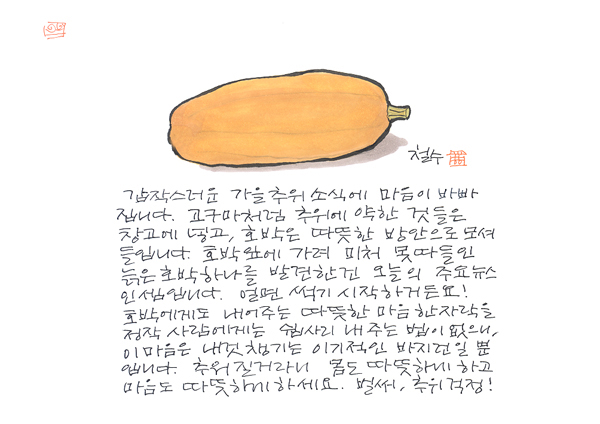 철수
갑작스러운 가을추위 소식에 마음이 바빠
집니다. 고구마처럼 추위에 약한 것들은
창고에 넣고, 호박은 따뜻한 방안으로 모셔
들입니다. 호박잎에 가려 미처 못 따들인
늙은호박하나를 발견한건 오늘의 주요뉴스
인셈입니다. 얼면 썩기 시작하거든요!
호박에게도 내어주는 따뜻한 마음 한자락을
정작 사람에게는 쉽사리 내주는 법이 없으니,
이 마음은 내것 챙기는 이기적인 바지런일 뿐
입니다. 추워질거라니 몸도 따뜻하게 하고
마음도 따뜻하게 하세요. 벌써, 추위걱정!